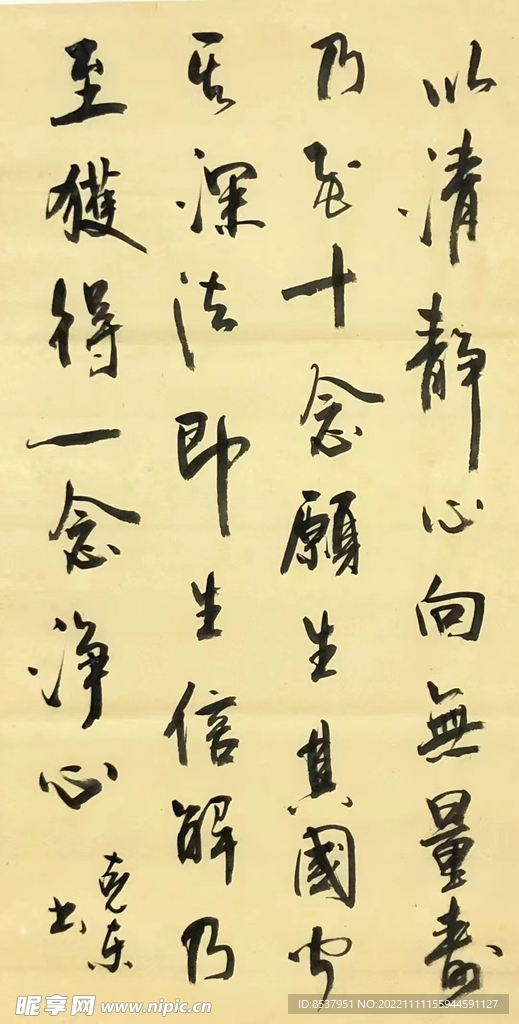 以清靜心向無量壽
乃至十念願生其國聞
甚深法即生信解乃
至獲得一念淨心
克东
书
昵享网 www.nipic.cn
ID:8537951 NO:20221111155944591127